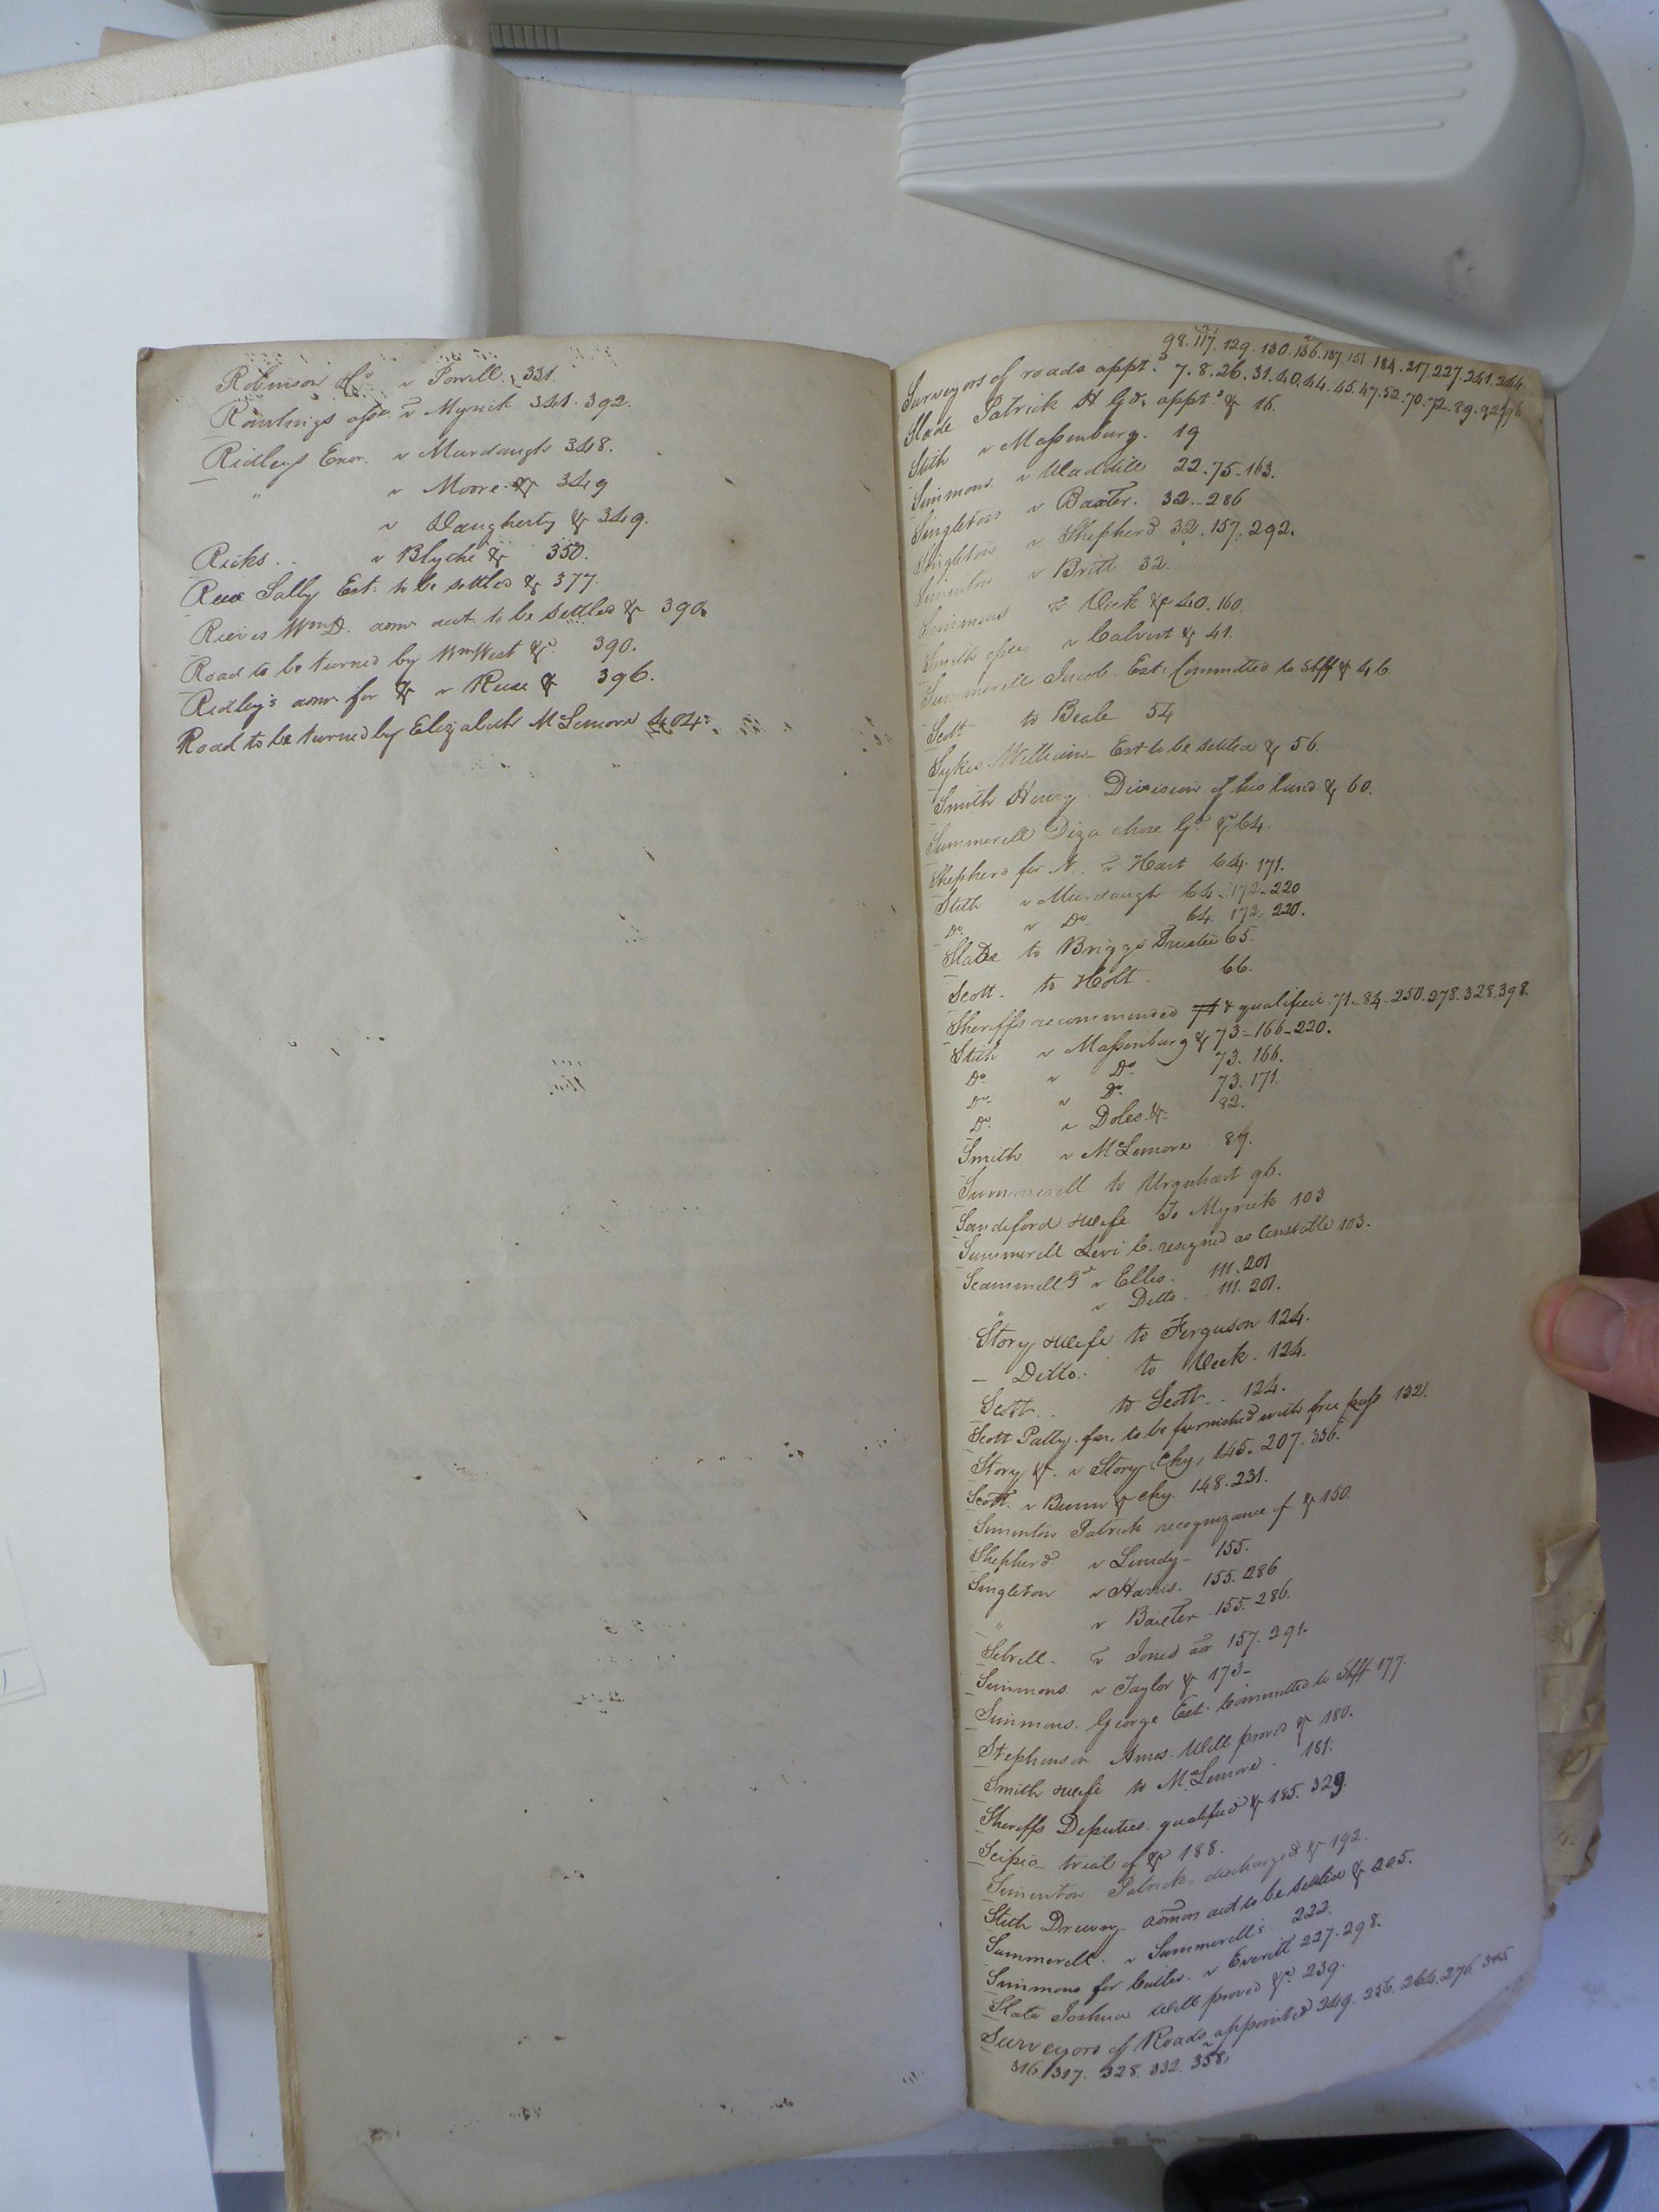 Robinson &c. v Powell. 331.
Rawlings assee. v Myrick 341. 392.
Ridleys Exor. v Murdaugh 348.
" v Moore & 349
v Daugherty & 349.
Ricks.. v Blythe & 350.
Sally Est. to be settled & 377.
Rieves Wm. D. admr. acct. to be settled & 390.
Road to be turned by Wm West &c. 390.
Ridley's admr for & v Reese & 396.
Road to be turned by Elizabeth McLemore 404.
98. 117. 129. 130. 136. 137 151 184. 217. 227. 241. 244.
Surveyors of roads appt.d 7. 8. 26. 31. 40. 44. 45. 47. 52. 70. 72. 89. 92. 96
Slade Patrick H Gdn. appt.d & 16.
Stith v Massenburg. 19
Simmons v Waddill 22. 75. 163.
Singleton v Baxter. 32. 286
Singleton v Shepherd 32. 157. 292.
Siminton v Britt 32.
Simmons v Vick & 40. 160.
Smith assee. v Calvert & 41.
Summerell Jacob. Est. Committed to Shff & 46.
Scott to Beale 54
Sykes William Est to be settled & 56.
Smith Henry. Division of his land & 60.
Summerell Diza chose Gdn. &c 64.
Shepherd for N. v Hart 64. 171.
Stith v Murdaugh 64. 172. 220
Do. v Do. 64. 172. 220.
Slade to Briggs Trustee 65.
Scott. to Holt. 66.
Sheriffs recommended & qualified. 71. 84. 250. 278. 328. 398.
Stith v Massenburg & 73. 166. 220.
Do. v Do. 73. 166.
Do. v Do. 73. 171.
Do. v Doles. & 82.
Smith v McLemore. 87.
Summerell to Urquhart 96.
Sandiford & Wife To Myrick 103
Summerell Levi C. resigned as Constable 103.
Scammell Gdn v Ellis. 111. 201
" v Ditto. 111. 201.
Story & Wife to Ferguson 124.
Ditto. to Vick. 124.
Scott.. to Scott.. 124.
Scott Patty. &c. to be furnished with free pass 132.
Story &. v Story Chy, 145. 207. 336.
Scott. v Bunn & Chy. 148. 231.
Siminton Patrick recognizance of & 150.
Shepherd v Lundy 155.
Singleton v Harris. 155. 286
" v Baxter. 155. 286.
Sebrell. v Jones 157. 291.
Simmons. v Taylor & 173
Simmons. George Est. Committed to Shff 177.
Stephenson Amos. Will proved & 180.
Smith & Wife to McLemore. 181.
Sheriffs Deputies. qualified & 185. 329.
Scipio trial of & 188.
Siminton Patrick discharged & 192.
Stith Drewry admors acct to be settled & 205.
Summerell. v Summerell's. 222.
Simmons for Cutler. v Everitt 227. 298.
Slate Joshua Will proved &c. 239.
Surveyors of Roads appointed 249. 256. 264. 276. 345.
316. 317. 328. 332. 358.